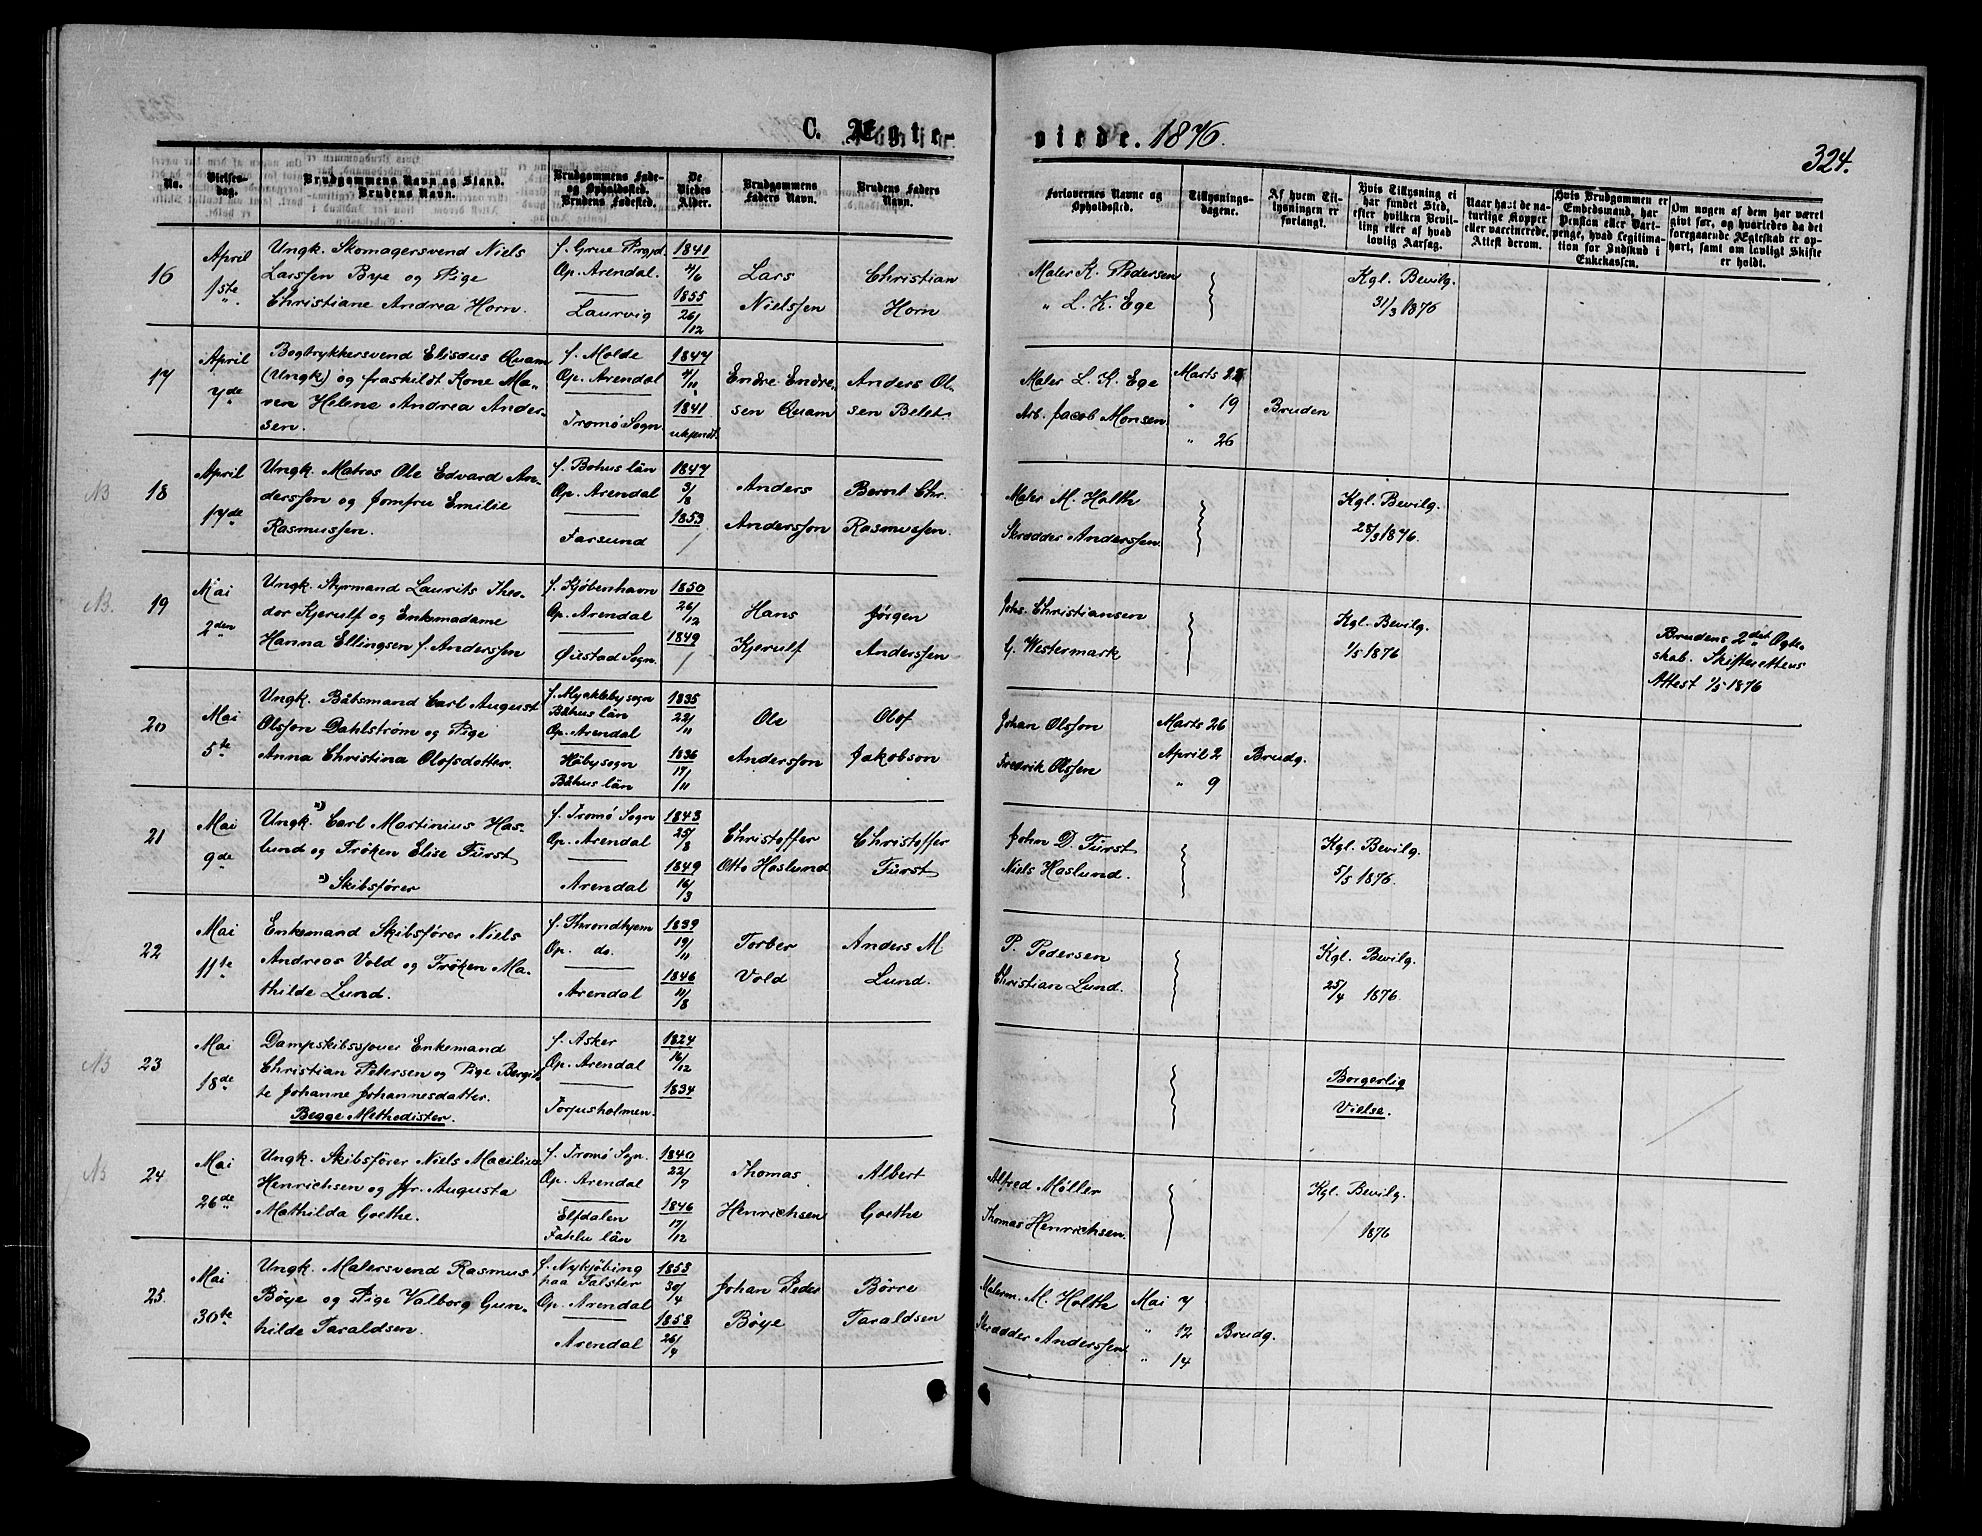 C. Ægte-
viede. 1876.
324.
No.
Vielses-
dag.
Brudgommens Navn og Stand.
Brudens Navn.
Brudgommens Føde-
og Opholdssted.
Brudens Fødested.
De
Viedes
Alder.
Brudgommens
Faders Navn.
Brudens Faders
Navn.
Forlovernes Navne og
Opholdssted.
Tillysnings-
dagene.
Af hvem Til-
lysningen er
forlangt.
Hvis Tillysning ei
har fundet Sted,
efter hvilken Bevil-
ling eller af hvad
lovlig Aarsag.
Naar havt de na-
turlige Kopper
eller vaccinerede.
Attest derom.
Hvis Brudgommen er
Embedsmand, har
Pension eller Vart-
penge, hvad Legitima-
tion for Indskud i
Enkekassen.
Om nogen af dem har været
gift før, og hvorledes da det
foregaaende Ægteskab er op-
hørt, samt om lovligt Skifte
er holdt.
16
April
1ste
Ungk. Skomagersvend Niels
Larssen Bye og Pige
Christiane Andrea Horn.
f. Grue Prgjd.
Op. Arendal.
Laurvig
1841
4/6
1855
26/12
Lars
Nielssen
Christian
Horn
Maler K. Pedersen
" L. K. Ege
Kgl. Bevilg.
31/3 1876
17
April
7de
Bogtrykkersvend Elisæus Quam
(Ungk) og fraskildt Kone Ma-
ren Helene Andrea Ander-
sen.
f. Molde
Op. Arendal
Tromø Sogn
1847
4/11
1841
ukjendt.
Endre Endre-
sen Quam
Anders Ol-
sen Belet
Maler L. K. Ege
Arb. Jacob Monsen
Marts
" 19
" 26
Bruden
NB
18
April
17de
Ungk. Matros Ole Edvard An-
dersson og Jomfru Emilie
Rasmussen.
f. Bohus län
Op. Arendal
Farsund
1847
3/8
1853
/
Anders
Andersson
Berost Chr.
Rasmussen.
Maler M. Holth
Skrædder Anderssen.
Kgl. Bevilg.
28/3 1876.
NB.
19
Mai
2den
Ungk. Styrmand Laurits Theo-
dor Kjerulf og Enkemadame
Hanna Ellingsen f. Anderssen
f. Kjøbenhavn
Op. Arendal
Øiestad Sogn.
1850
26/12
1849
/
Hans
Kjerulf
Jørgen
Anderssen
Johs. Christiansen
G. Westermark
Kgl. Bevilg.
1/5 1876
Brudens 2det Ægte-
skab. Skifterettens
Attest 1/5 1876
20
Mai
5te
Ungk. Båtsmand Carl August
Olsson Dahlstrøm og Pige
Anna Christina Olofsdotter.
f. Myckleby sogn
Båhus län
Op. Arendal
Håby sogn
Båhus län
1835
22/11
1836
17/11
Ole
Andersson
Olof
Jakobson
Johan Olsson
Fredrik Olssen
Marts 26
April 2
" 9
Brudg.
21
Mai
9de
Ungk. *) Carl Martinius Has-
lund og Frøken Elise Fürst
*) Skibsfører
f. Tromø Sogn
Op. Arendal
Arendal
1843
25/8
1849
16/3
Christoffer
Otto Haslund
Christoffer
Fürst
John D. Fürst
Niels Haslund.
Kgl. Bevilg.
5/5 1876.
22
Mai
11te
Enkemand Skibsfører Niels
Andreas Vold og Frøken Ma-
thilde Lund.
f. Throndhjem
Op. do.
Arendal
1839
19/11
1846
11/8
Torber
Vold
Anders M
Lund.
P. Pedersen
Christian Lund.
Kgl. Bevilg.
25/4 1876.
NB
23
Mai
18de
Dampskibssjouer Enkemand
Christian Petersen og Pige Bergit-
te Johanne Johannesdatter.
Begge Methodister.
f. Asker
Op. Arendal
Torjusholmen.
1824
16/12
1834
Borgerlig
Vielse.
NB
24
Mai
26de
Ungk. Skibsfører Niels Macilius
Henrichsen og Jfr. Augusta
Mathilda Goethe.
f. Tromø Sogn.
Op. Arendal
Elfdalen
Fahlu län
1840
22/7
1846
17/12
Thomas
Henrichsen
Albert
Goethe
Alfred Møller
Thomas Henrichsen.
Kgl. Bevilg.
1876
25.
Mai
30te
Ungk. Malersvend Rasmus
Bøye og Pige Valborg Gun-
hilde Taraldsen.
f. Nykjøbing
paa Falster
Op. Arendal
Arendal
1853
30/4
1858
26/4
Johan Peder
Bøye
Børre
Taraldsen
Malerm. M. Holthe
Skrædder Anderssen.
Mai 7
" 12
" 14
Brudg.